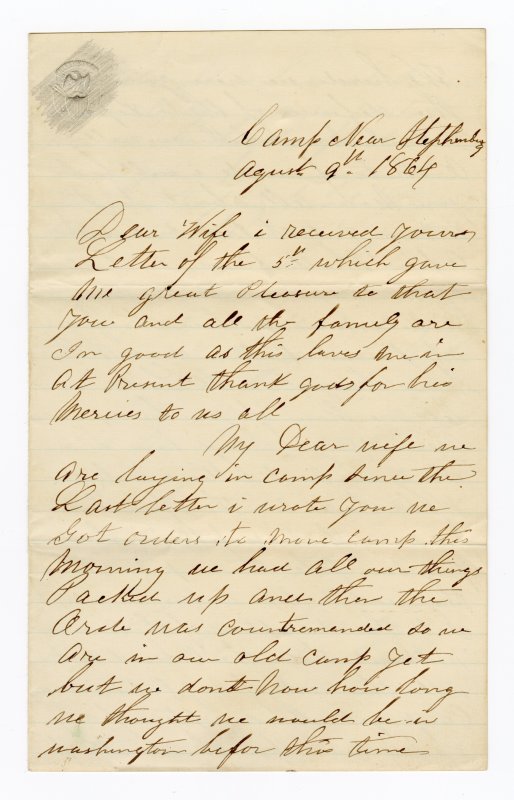 Camp Near Stephenburg
Agust 9th 1864
Dear Wife i received yours
Letter of the 5th which gave
me great Pleasure to that
you and all the family are
In good as this laves me in
At Present thank god for his
Mercies to us all
My Dear wife we
Are laying in camp since the
Last letter i wrote you we
Got orders to move camp this
Morning we had all our things
Packed up and then the
Orde was countremanded so we
Are in our old camp yet
but we dont know how long
we thought we would be in
washington befor this time